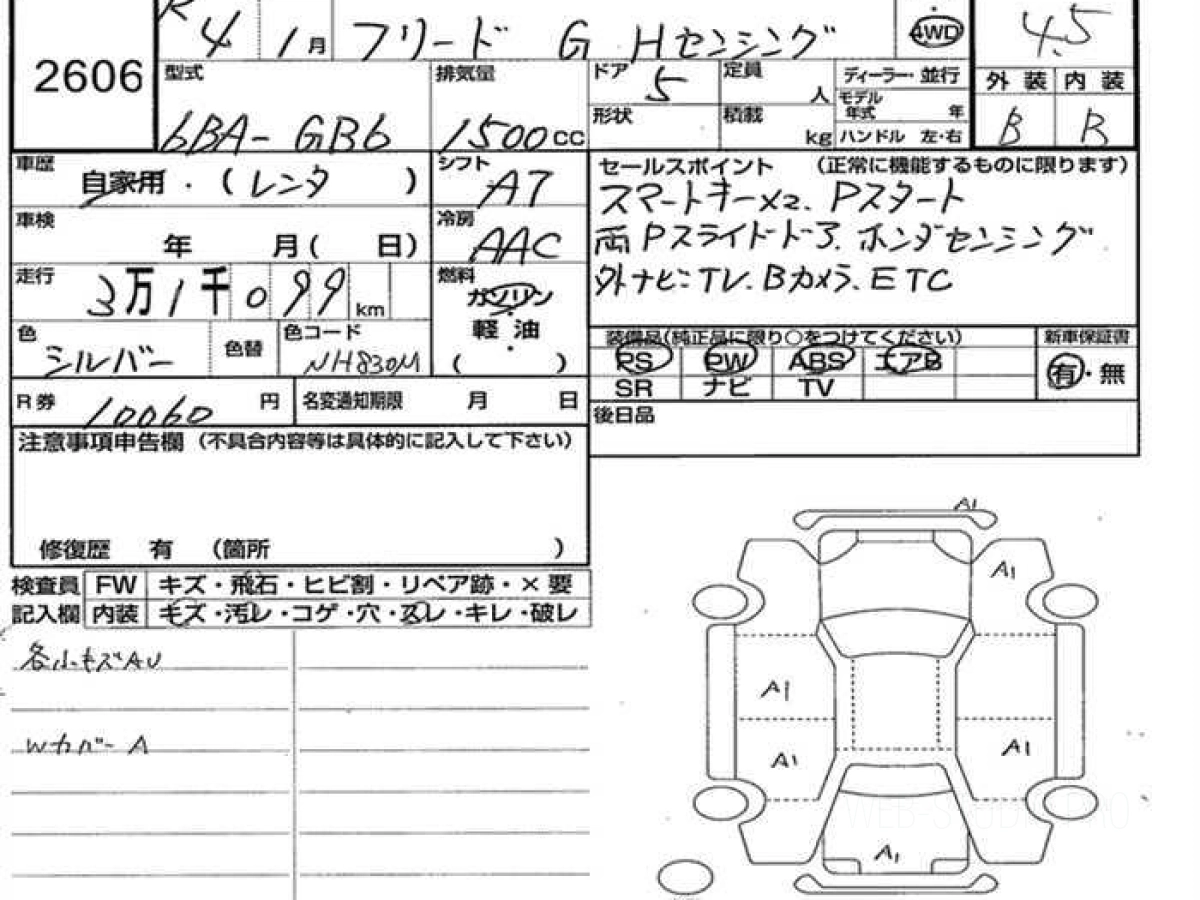 R4 1月 フリード G Hセンシング 4WD 4.5
2606
型式 6BA-GB6 排気量 1500cc
ドア 5 定員 人 ディーラー・並行
形状 積載 kg モデル年式 年
ハンドル 左・右
外装 内装
B B
車歴 自家用・(レンタ )
シフト AT
車検 年 月( 日)
冷房 AAC
走行 3万1千099km
燃料 ガソリン
軽油
( )
色 シルバー 色替 色コード NH830M
セールスポイント (正常に機能するものに限ります)
スマートキーX2. Pスタート
両Pスライドドア. ホンダセンシング
外ナビ:TV. Bカメラ. ETC
装備品(純正品に限り○をつけてください) 新車保証書
PS PW ABS エアB 有・無
SR ナビ TV
R券 10060円 名変通知期限 月 日
後日品
注意事項申告欄(不具合内容等は具体的に記入して下さい)
修復歴 有 (箇所 )
検査員 FW キズ・飛石・ヒビ割・リペア跡・×要
記入欄 内装 キズ・汚レ・コゲ・穴・スレ・キレ・破レ
各小キズAU
Wカバー A
A1
A1
A1
A1
A1
A1